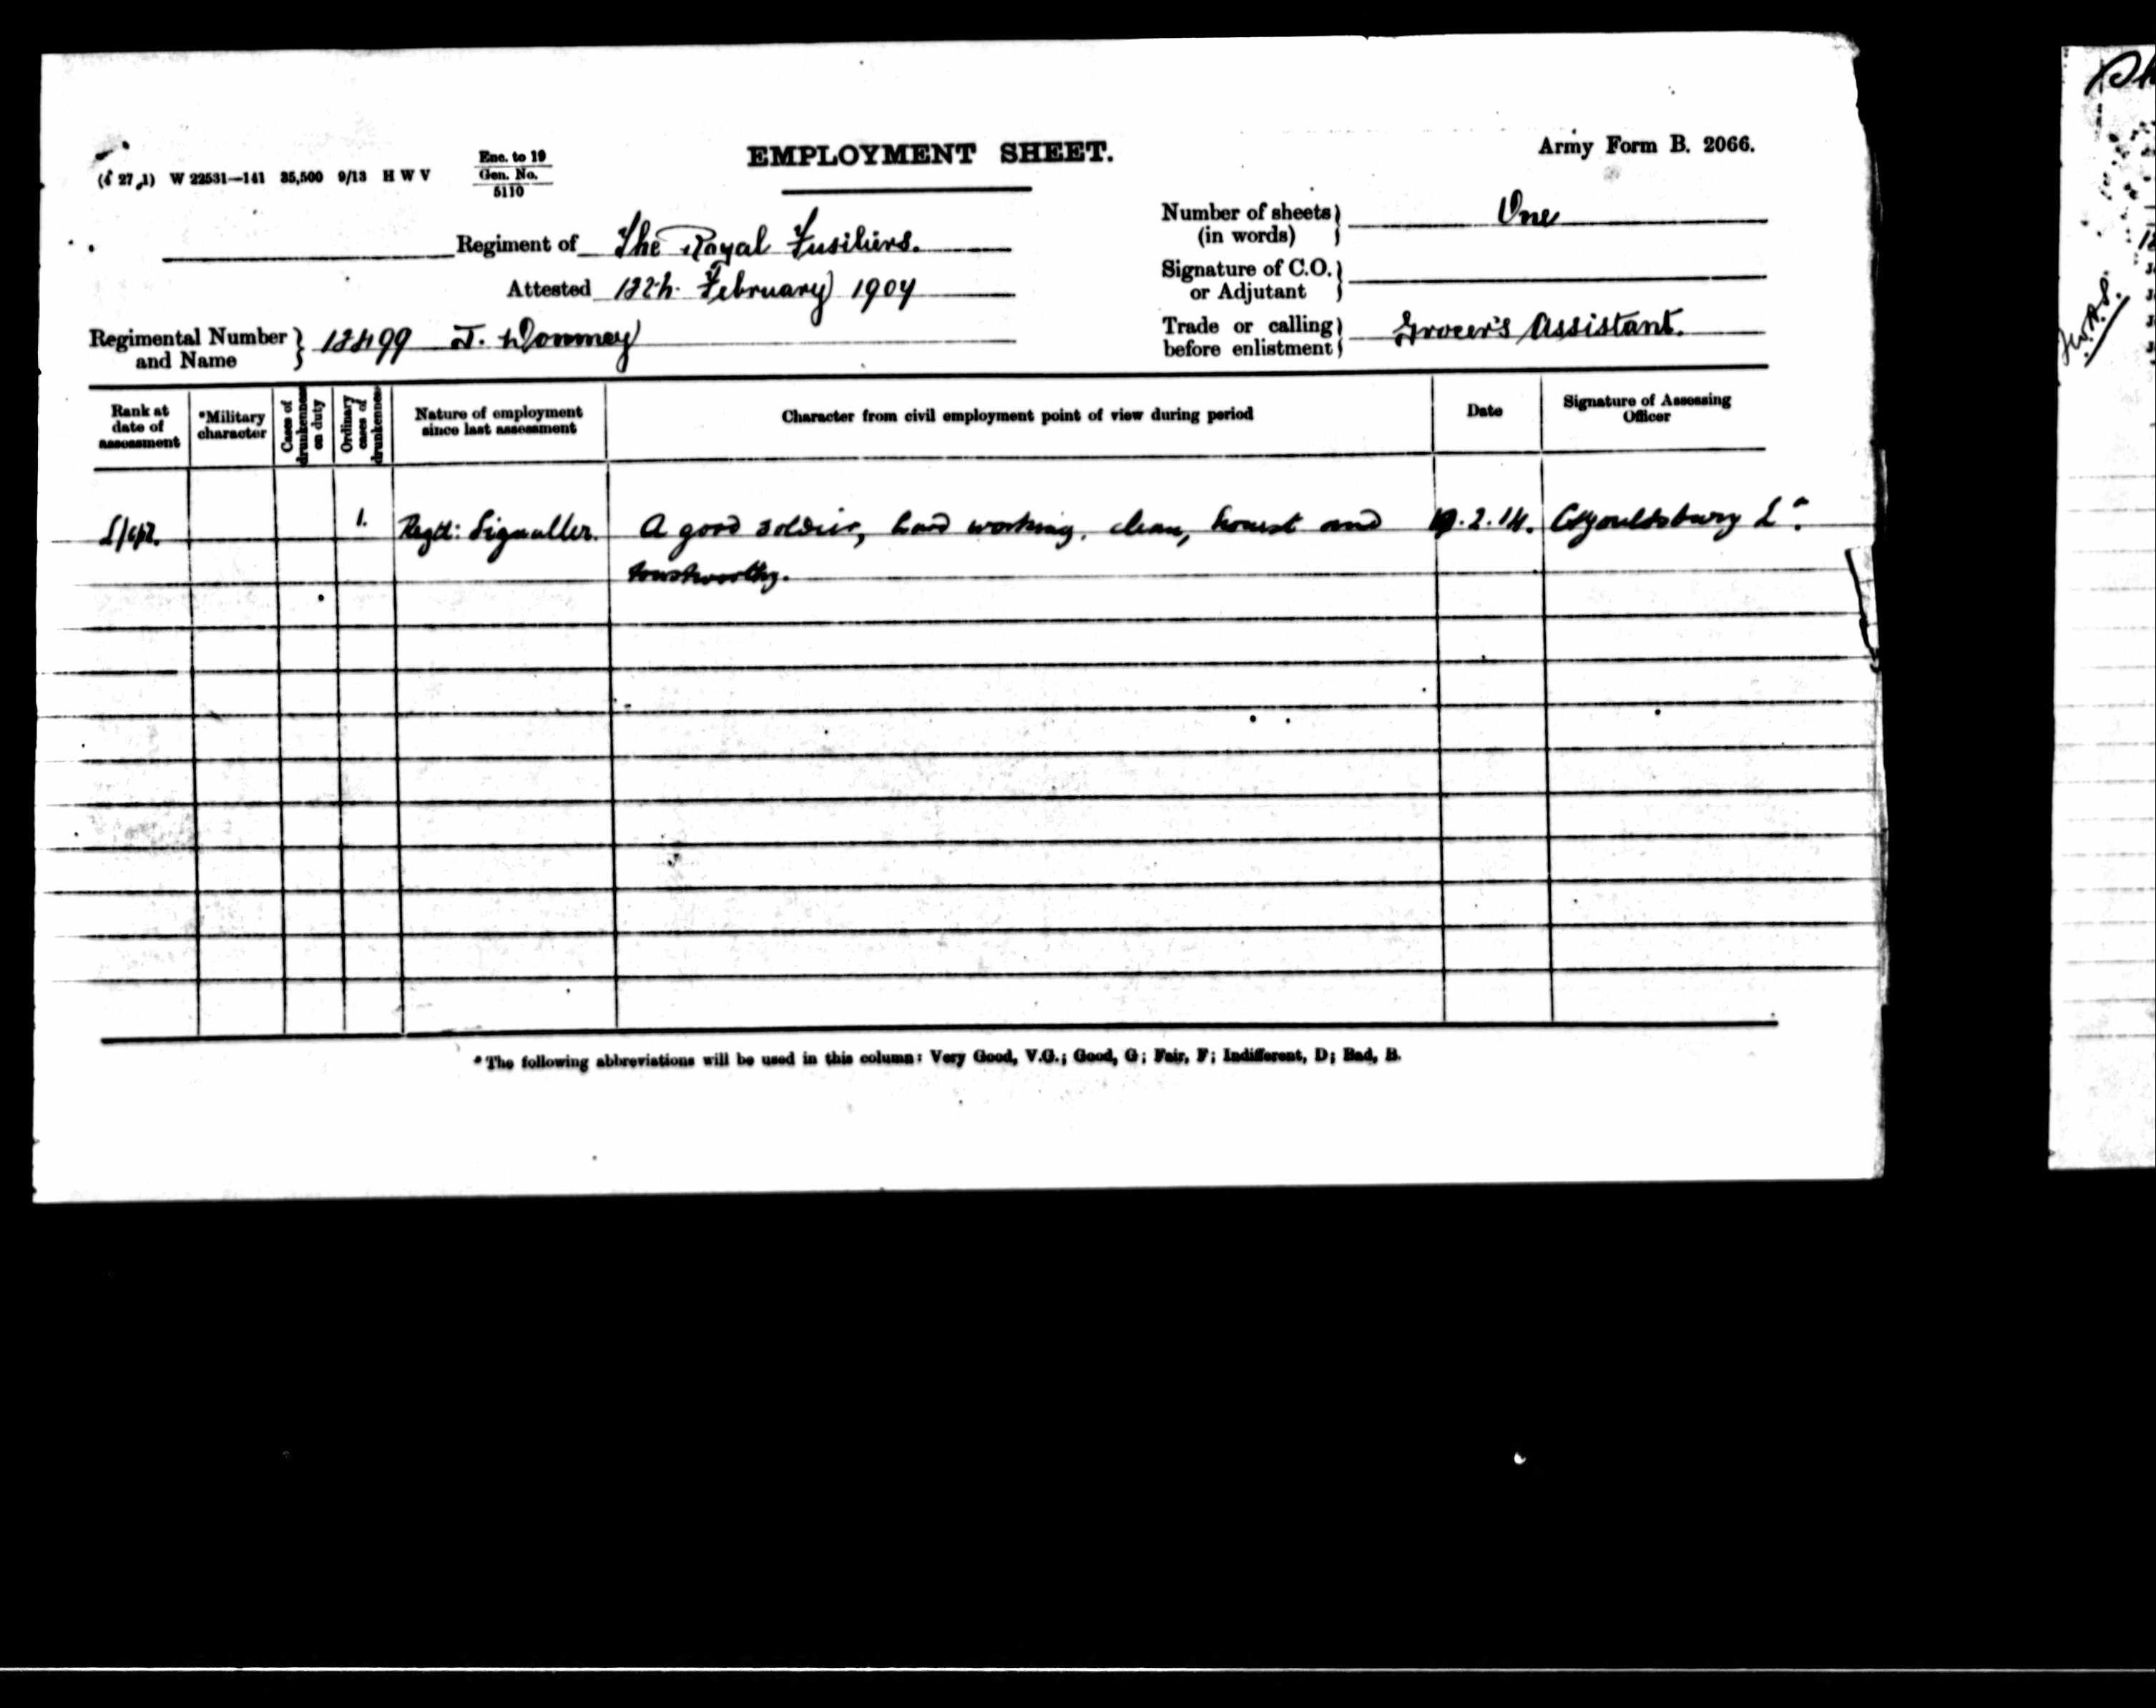 EMPLOYMENT SHEET.
Army Form B. 2066.
W 22531—141 35,500 9/13 H W V
Enc. to 19
Gen. No.
5110
Regiment of The Royal Fusiliers.
Attested 12th February 1904
Regimental Number and Name } J.
Number of sheets (in words) } One
Signature of C.O. or Adjutant }
Trade or calling before enlistment } Grocer's Assistant.
Rank at date of assessment
*Military character
Cases of drunkenness on duty
Ordinary cases of drunkenness
Nature of employment since last assessment
Character from civil employment point of view during period
Date
Signature of Assessing Officer
L/Cpl. 1. Regtl: Signaller. A good soldier, hard working, clean, honest and .2.14.
trustworthy.
*The following abbreviations will be used in this column: Very Good, V.G.; Good, G; Fair, F; Indifferent, D; Bad, B.